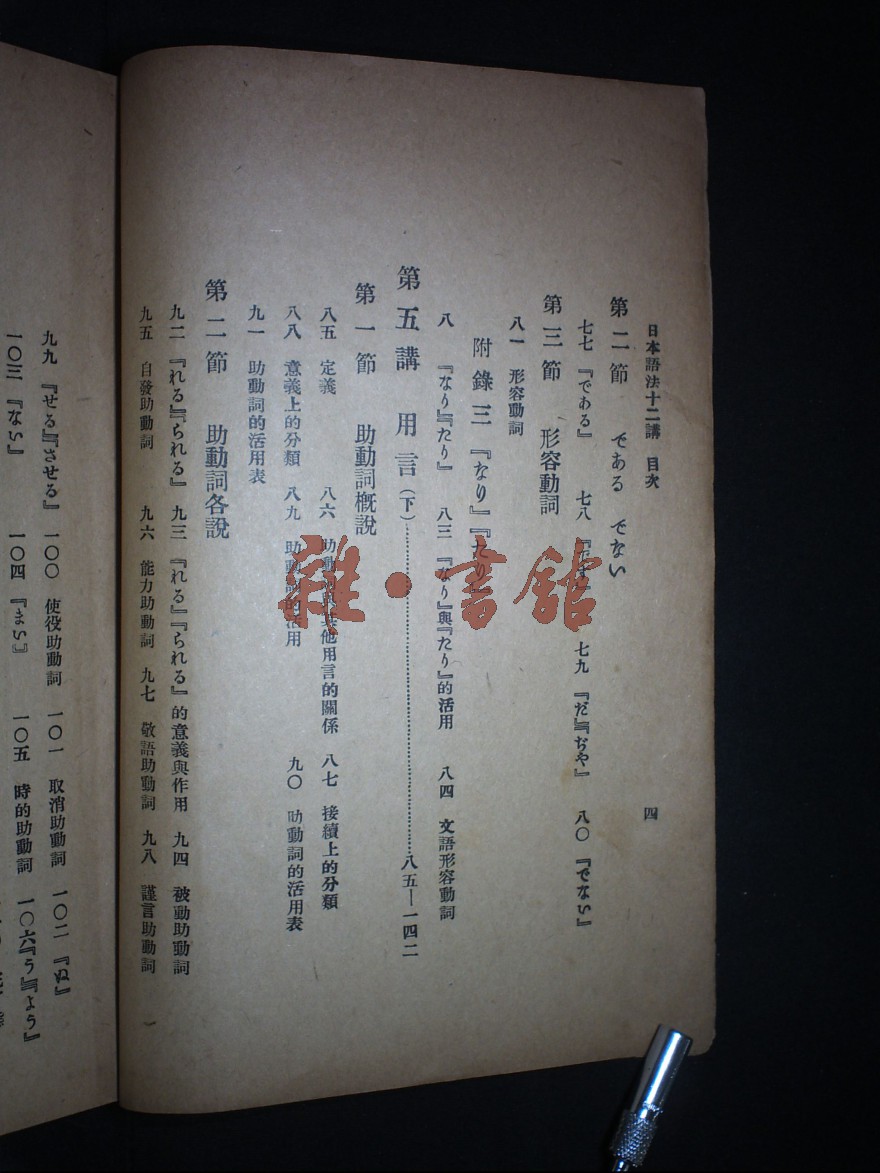 日本語法十二講 目次 四
第二節 である でない
七七 『である』 七八 『です』 七九 『だ』『ぢや』 八〇 『でない』
第三節 形容動詞
八一 形容動詞
附錄三 『なり』『たり』
八 『なり』『たり』 八三 『なり』與『たり』的活用 八四 文語形容動詞
第五講 用言(下)……八五—一四二
第一節 助動詞概說
八五 定義 八六 助動詞與其他用言的關係 八七 接續上的分類
八八 意義上的分類 八九 助動詞的活用 九〇 助動詞的活用表
九一 助動詞的活用表
第二節 助動詞各說
九二 『れる』『られる』 九三 『れる』『られる』的意義與作用 九四 被動助動詞
九五 自發助動詞 九六 能力助動詞 九七 敬語助動詞 九八 謹言助動詞
九九 『せる』『させる』 一〇〇 使役助動詞 一〇一 取消助動詞 一〇二 『ぬ』
一〇三 『ない』 一〇四 『まい』 一〇五 時的助動詞 一〇六 『う』『よう』
雜·書館